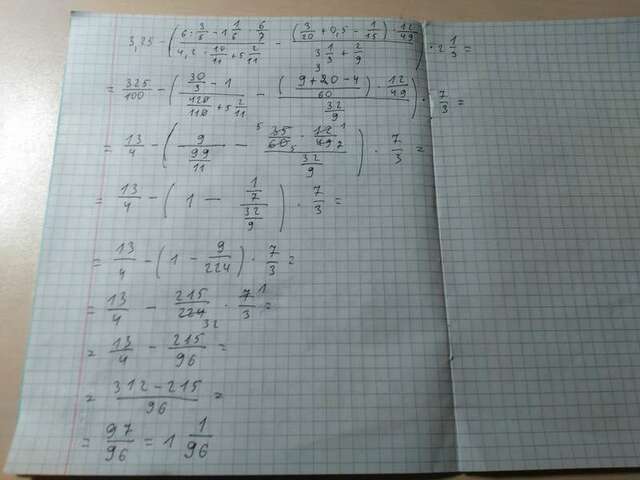 3,25 - ( (6 : 3/5 - 1 1/6 · 6/7) / (4,2 · 10/11 + 5 2/11) - ((3/20 + 0,5 - 1/15) · 12/49) / (3 1/3 + 2/9) ) · 2 1/3 =
= 325/100 - ( (30/3 - 1) / (420/110 + 5 2/11) - (((9+20-4)/60) · 12/49) / (32/9) ) · 7/3 =
= 13/4 - ( 9 / (99/11) - (35/60 · 12/49) / (32/9) ) · 7/3 =
= 13/4 - ( 1 - (1/7) / (32/9) ) · 7/3 =
= 13/4 - ( 1 - 9/224 ) · 7/3 =
= 13/4 - 215/224 · 7/3 =
= 13/4 - 215/96 =
= (312 - 215)/96 =
= 97/96 = 1 1/96